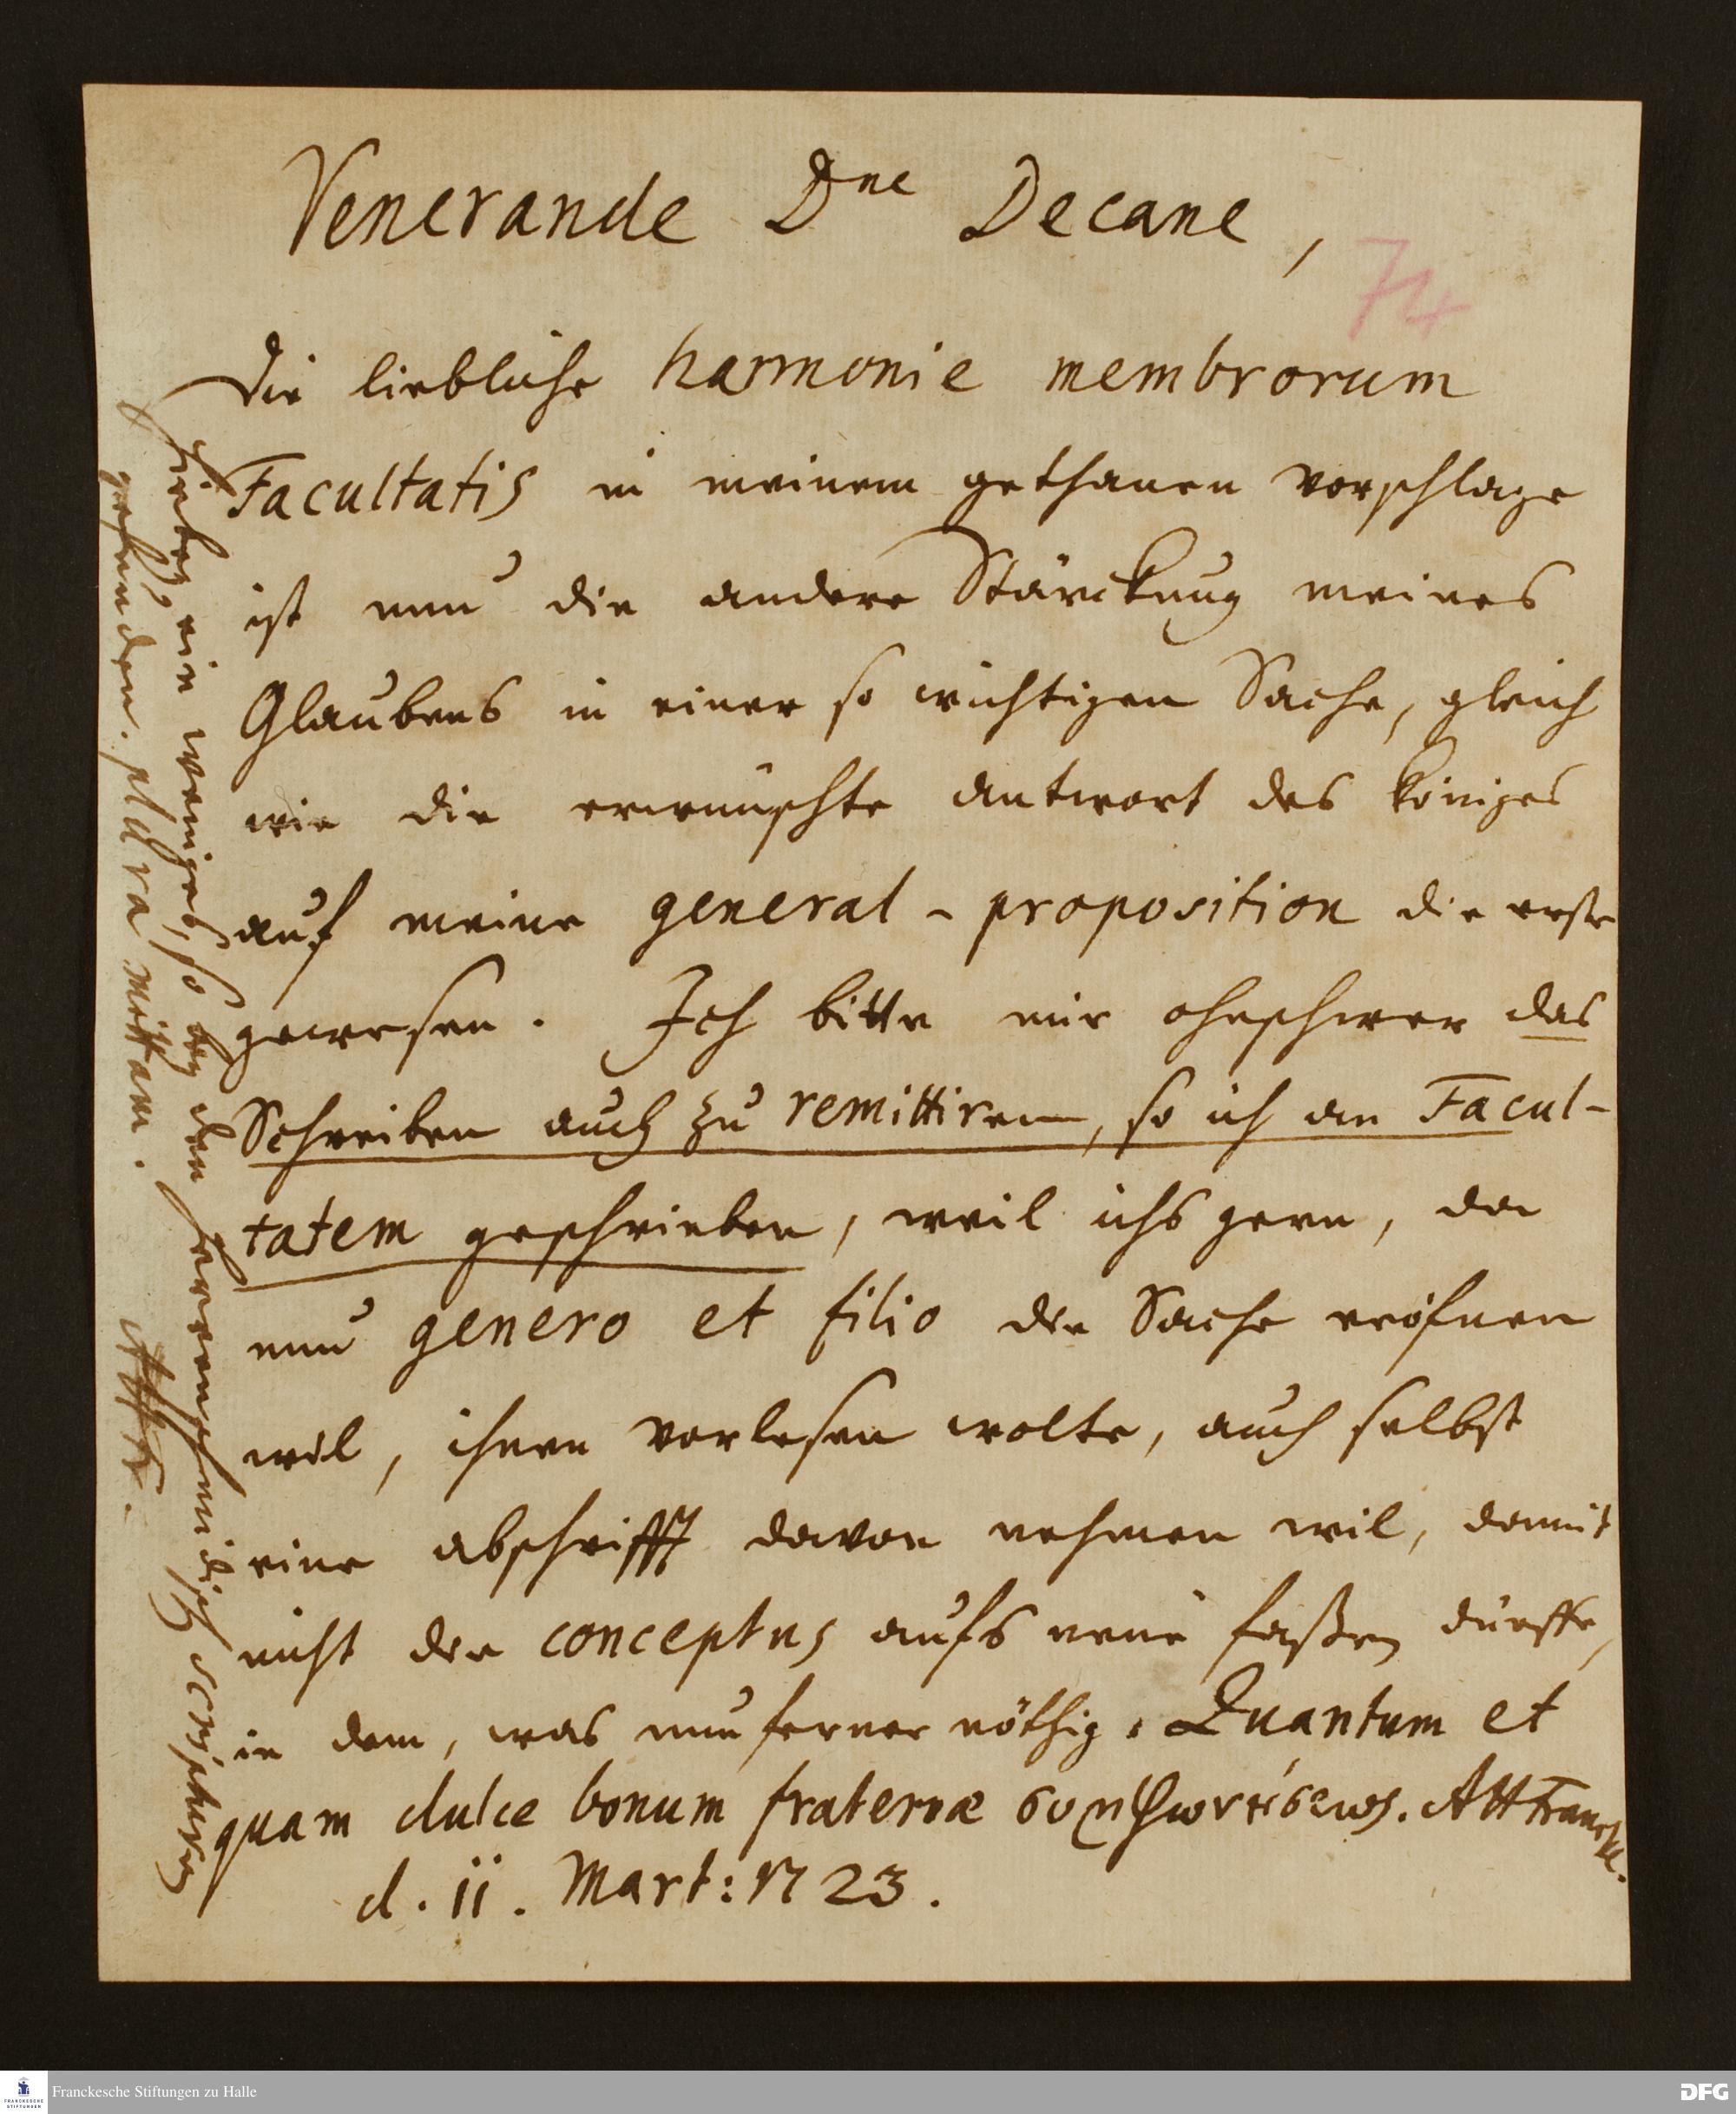 Venerande Dne Decane,
74
Die liebliche harmonie membrorum
Facultatis in meinem gethanen vorschlage
ist nun die andere Stärckung meines
Glaubens in einer so wichtigen Sache, gleich
wie die erwünschte antwort des Königes
auf meine general-proposition die erste
gewesen. Ich bitte mir ohnschwer das
Schreiben auch zu remittiren, so ich an Facul-
tatem geschrieben, weil ichs gern, da
nun genero et filio die Sache eröfnen
wil, ihnen vorlesen wolte, auch selbst
eine abschrifft davon nehmen wil, damit
nicht den conceptus aufs neue faßen dürffe,
in dem, was nun ferner nöthig. Quantum et
quam dulce bonum fraternæ συμφωνήσεως. AHFrancke.
d. 11. Mart: 1723.
Hiebey ein weniges, so bey den
gefunden. plura mittam.
Franckesche Stiftungen zu Halle
FRANCKESCHE STIFTUNGEN
DFG